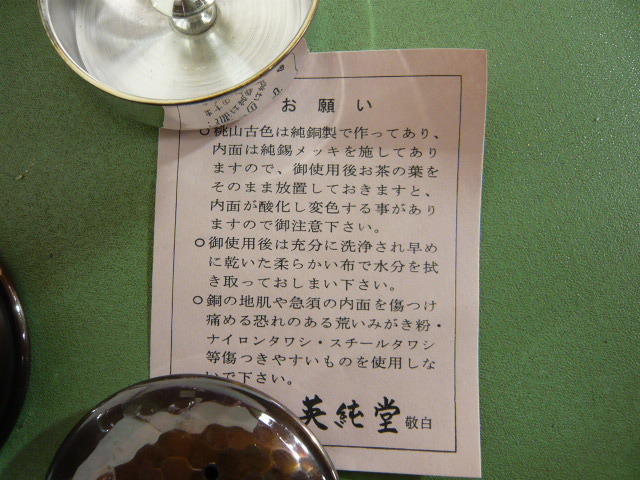 お願い
○桃山古色は純銅製で作ってあり、
内面は純錫メッキを施してあり
ますので、御使用後お茶の葉を
そのまま放置しておきますと、
内面が酸化し変色する事があり
ますので御注意下さい。
○御使用後は充分に洗浄され早め
に乾いた柔らかい布で水分を拭
き取っておしまい下さい。
○銅の地肌や急須の内面を傷つけ
痛める恐れのある荒いみがき粉・
ナイロンタワシ・スチールタワシ
等傷つきやすいものを使用しな
いで下さい。
英純堂 敬白